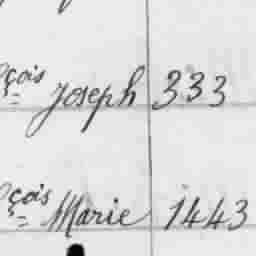 çois Joseph 333
çois Marie 1443